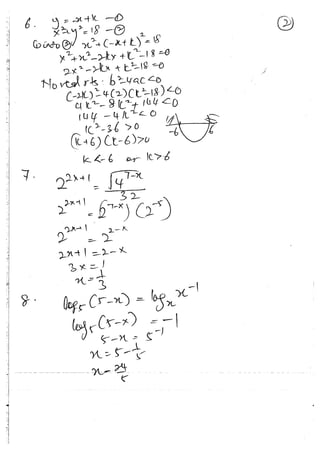 ②
6. y = -x+k —①
x²+y²=18 —②
① into ② x²+(-x+k)²=18
x²+x²-2kx+k²-18=0
2x²-2kx+k²-18=0
No real rts: b²-4ac<0
(-2k)²-4(2)(k²-18)<0
4k²-8k²+144<0
144-4k²<0
k²-36>0
(k+6)(k-6)>0
-6 6
k<-6 or k>6
7. 2^(2x+1) = √(4^(7-x)) / 32
2^(2x+1) = (2^(7-x))(2^(-5))
2^(2x+1) = 2^(2-x)
2x+1=2-x
3x=1
x=1/3
8. log₅(5-x) = logₓ x⁻¹
log₅(5-x) = -1
5-x = 5⁻¹
x=5-1/5
x=24/5